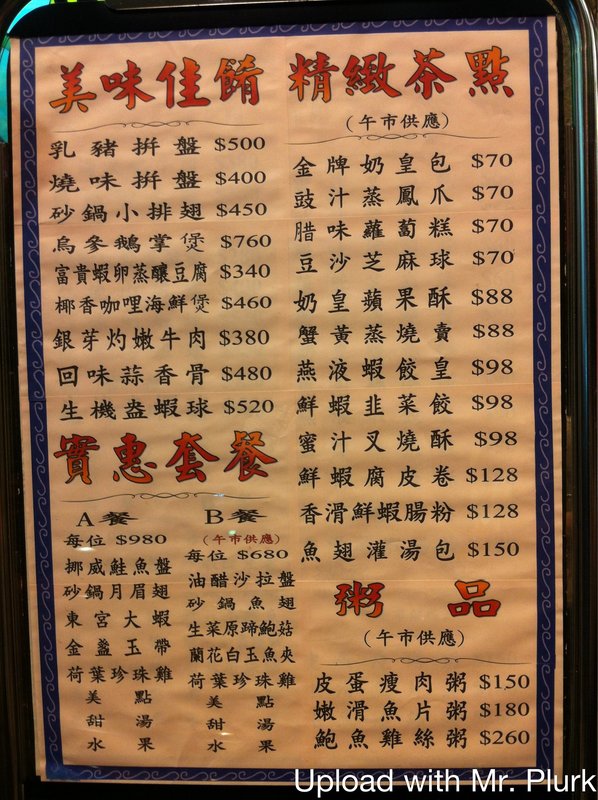 美味佳餚
乳豬拼盤 $500
燒味拼盤 $400
砂鍋小排翅 $450
烏參鵝掌煲 $760
富貴蝦卵蒸釀豆腐 $340
椰香咖哩海鮮煲 $460
銀芽灼嫩牛肉 $380
回味蒜香骨 $480
生機盎蝦球 $520
實惠套餐
A餐
每位 $980
挪威鮭魚盤
砂鍋月眉翅
東宮大蝦
金盞玉帶
荷葉珍珠雞
美點
甜湯
水果
B餐
(午市供應)
每位 $680
油醋沙拉盤
砂鍋魚翅
生菜原蹄鮑菇
蘭花白玉魚夾
荷葉珍珠雞
美點
甜湯
水果
精緻茶點
(午市供應)
金牌奶皇包 $70
豉汁蒸鳳爪 $70
腊味蘿蔔糕 $70
豆沙芝麻球 $70
奶皇蘋果酥 $88
蟹黃蒸燒賣 $88
燕液蝦餃皇 $98
鮮蝦韭菜餃 $98
蜜汁叉燒酥 $98
鮮蝦腐皮卷 $128
香滑鮮蝦腸粉 $128
魚翅灌湯包 $150
粥品
(午市供應)
皮蛋瘦肉粥 $150
嫩滑魚片粥 $180
鮑魚雞絲粥 $260
Upload with Mr. Plurk